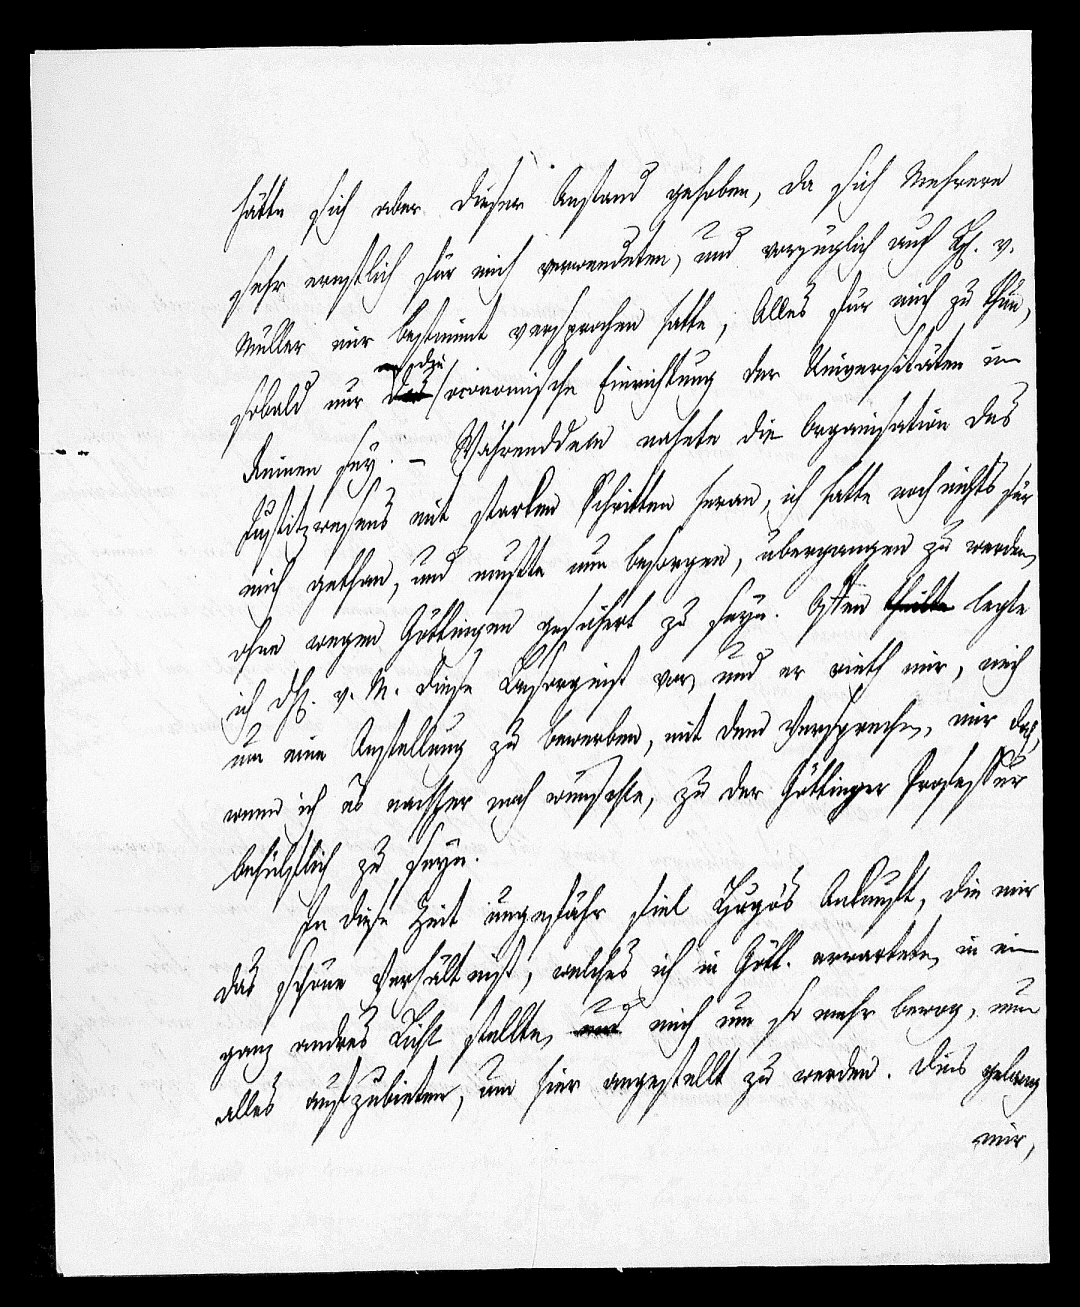 hätte sich aber dieser Anstand gehoben, da sich Mehrere
sehr ernstlich für mich verwendeten, und vorzüglich auch H. v.
Müller mir bestimmt versprochen hatte, Alles für mich zu thun,
sobald nur die öconomische Einrichtung der Universitäten im
Reinen sey. – Währenddem nahete die Organisation des
Justitzwesens mit starken Schritten heran, ich hatte noch nichts für
mich gethan, und mußte nun besorgen, übergangen zu werden,
ohne wegen Göttingen gesichert zu seyn. legte
ich H. v. M. diese Besorgniß vor, und er rieth mir, mich
um eine Anstellung zu bewerben, mit dem Versprechen, mir doch,
wenn ich es nachher noch wünschte, zu der Göttinger Professur
behülflich zu seyn.
In diese Zeit ungefähr fiel Hugo's Ankunft, die mir
das schöne Verhältniß, welches ich in Gött. erwartete, in ein
ganz andres Licht stellte, und mich um so mehr bewog, nun
alles aufzubieten, um hier angestellt zu werden. Dies gelang
mir,